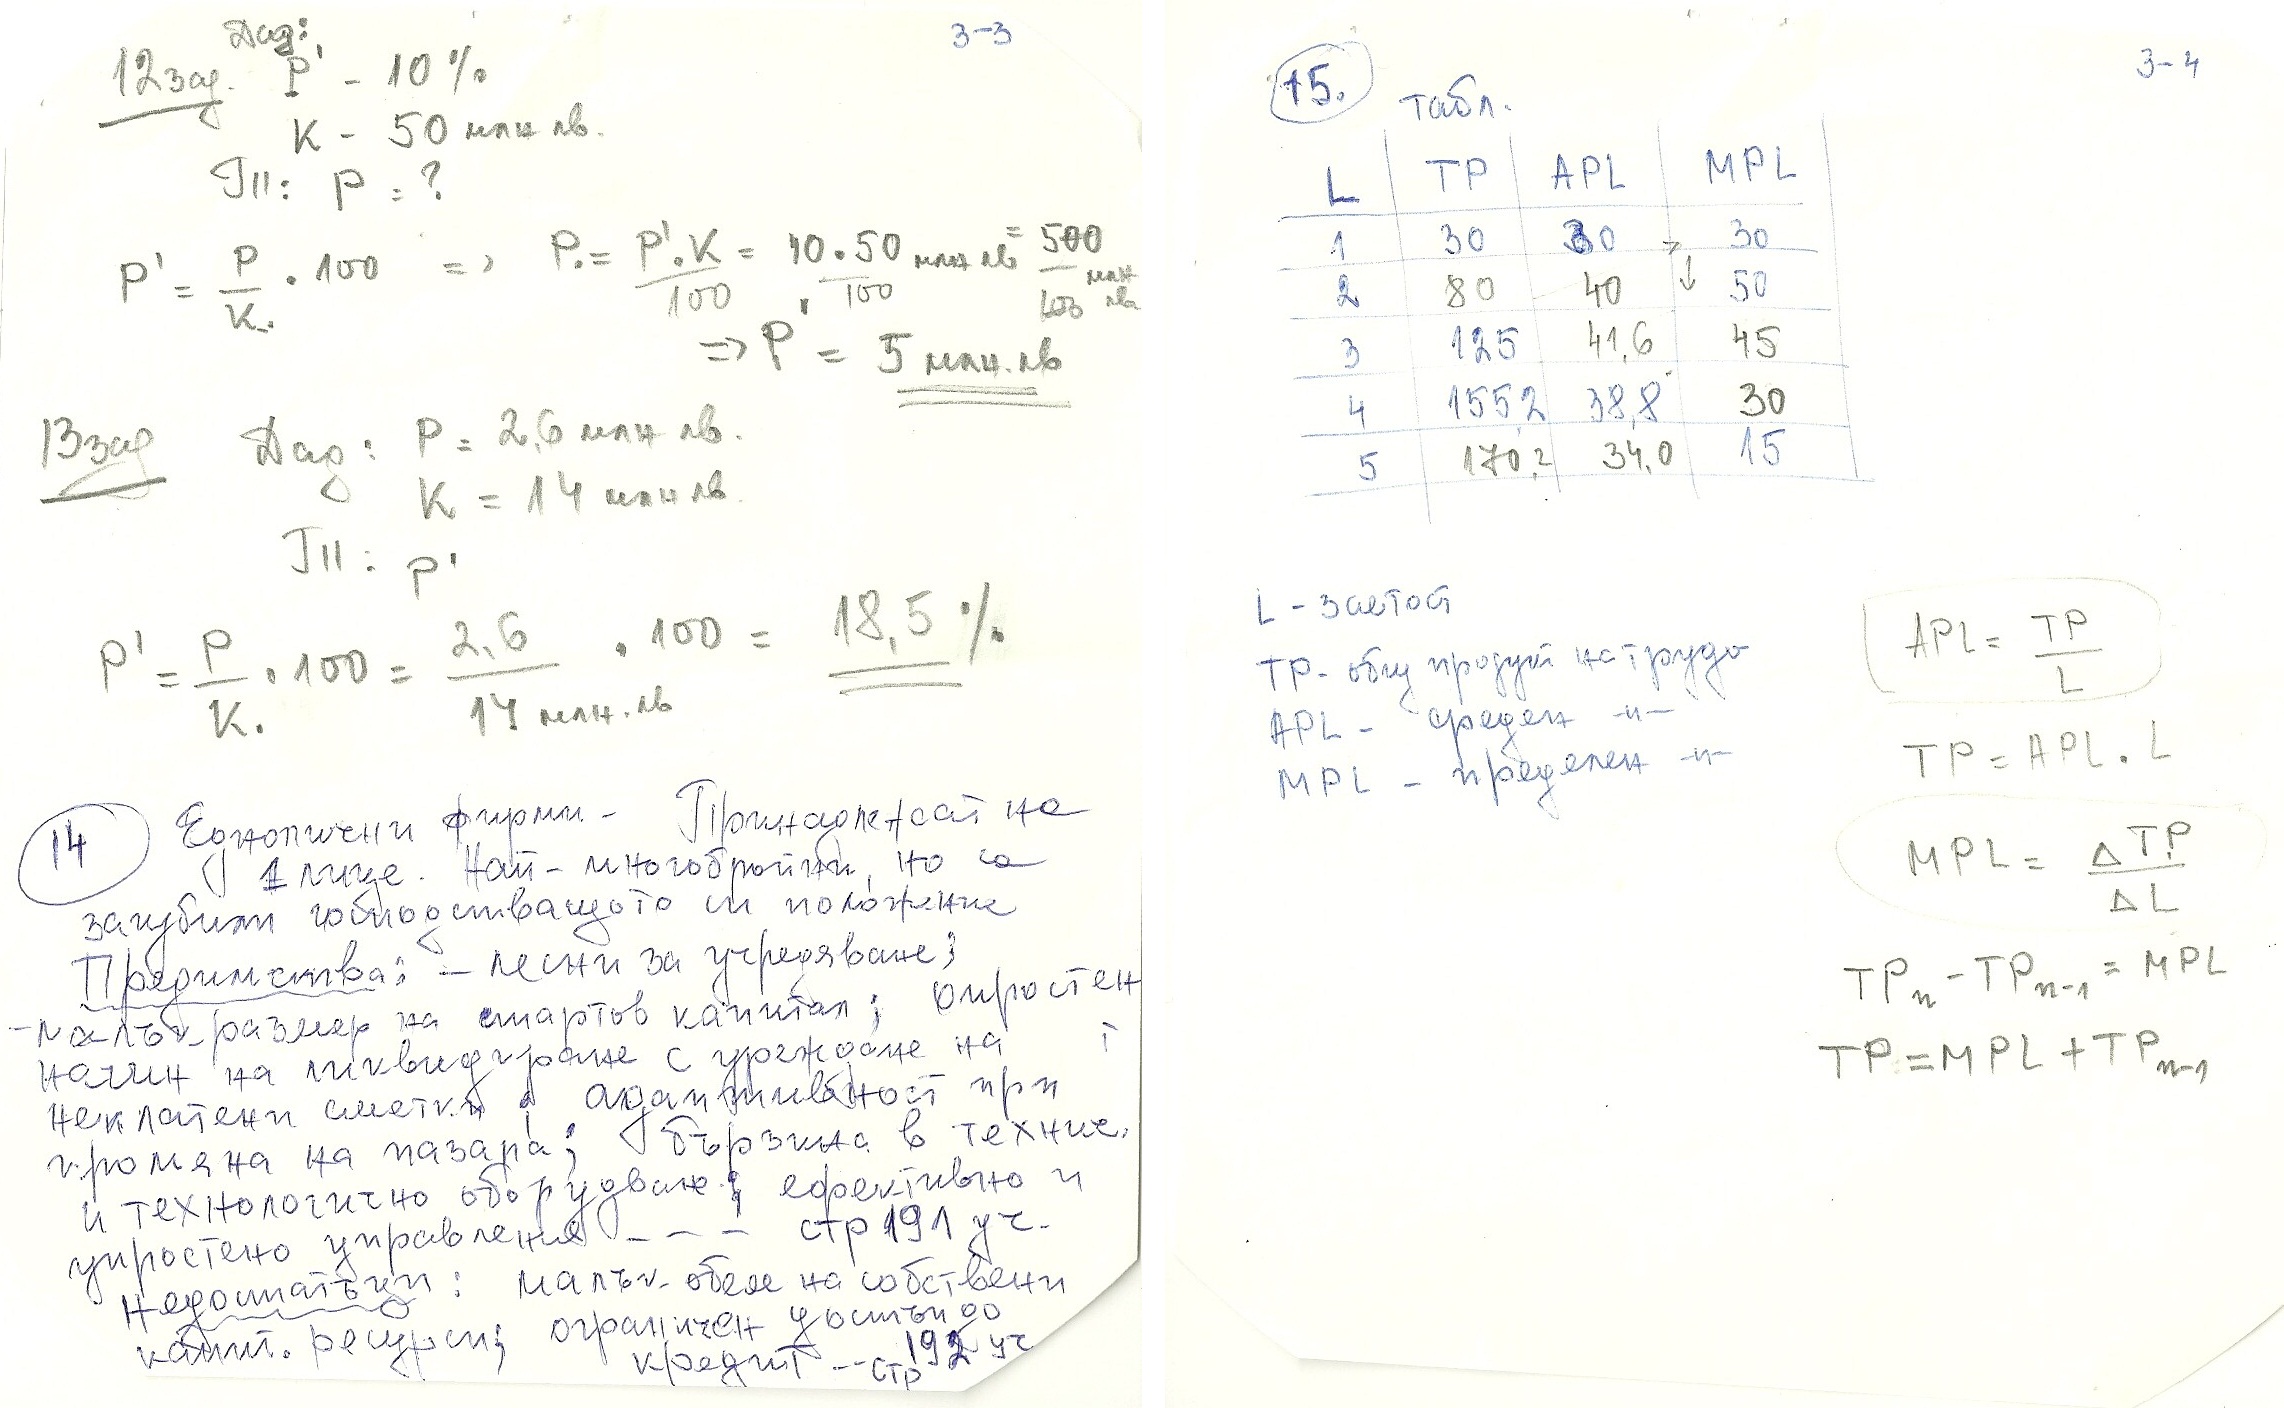 3-3
Дад:
12 зад. P' - 10 %
K - 50 млн лв.
ТП: P = ?
P' = P/K. • 100 => P. = P'.K/100 = 10.50/100 млн лв = 500/100 млн лв
=> P = 5 млн. лв
13 зад Дад: P = 2,6 млн лв.
K = 14 млн лв.
ТП: P'
P' = P/K. • 100 = 2,6/14 млн. лв • 100 = 18,5 %
14 Еднолични фирми - Принадлежат на
1 лице. Най-многобройни, но са
загубили господстващото си положение
Предимства: - лесни за учредяване;
- малък размер на стартов капитал; опростен
начин на ликвидиране с уреждане на
неплатени сметки; адаптивност при
промяна на пазара; бързина в технич.
и технологично оборудване; ефективно и
упростено управление - - - стр 191 уч.
Недостатъци: малък обем на собствени
капит. ресурси; ограничен достъп до
кредит -- стр 192 уч
3-4
15. Табл.
L TP APL MPL
1 30 30 30
2 80 40 ↓ 50
3 125 41,6 45
4 155,2 38,8 30
5 170,2 34,0 15
L - заетост
TP - общ продукт на труда
APL - среден -"-
MPL - пределен -"-
APL = TP/L
TP = APL . L
MPL = ΔTP/ΔL
TPn - TPn-1 = MPL
TP = MPL + TPn-1